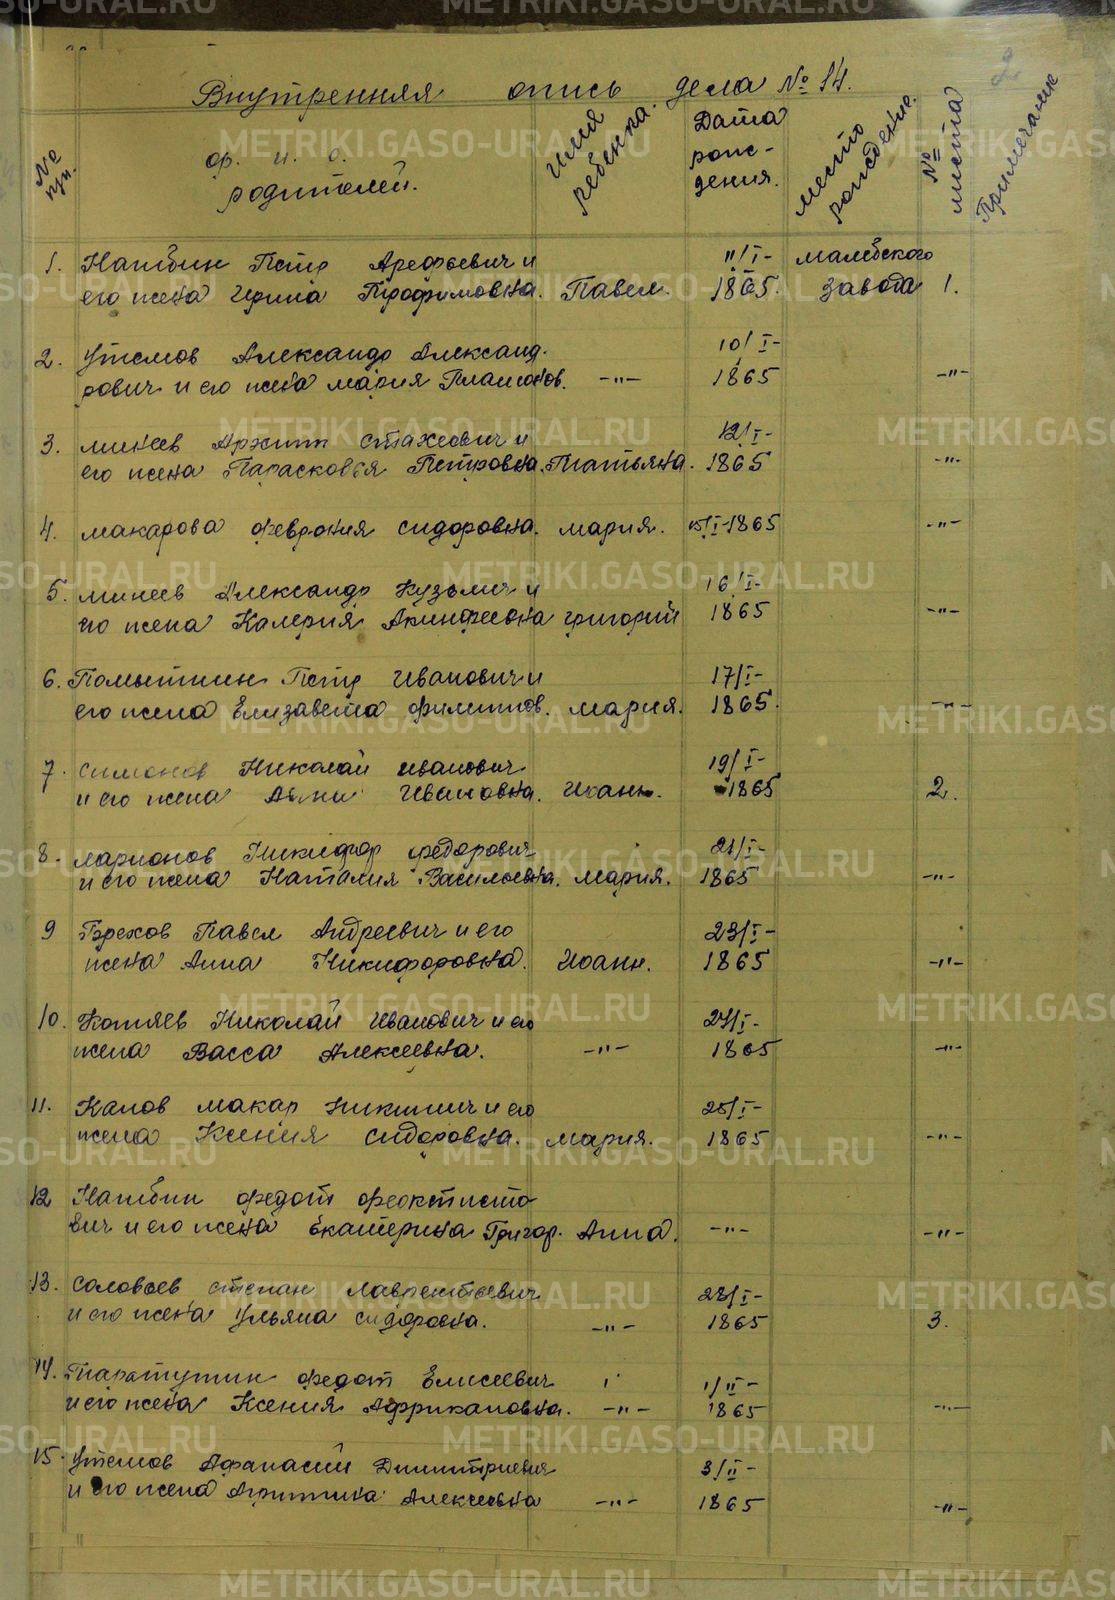 2
Внутренняя опись дела № 14.
№ п/п. ф. и. о. родителей. имя ребенка. Дата рождения. место рождения. № листа Примечание
1. Натбин Петр Арефьевич и 11/I- малебского
его жена Ирина Трофимовна. Павел. 1865. завода 1.
2. Утемов Александр Александ- 10/I-
рович и его жена мария Платонов. -"- 1865 -"-
3. минеев Архип стахеевич и 12/I-
его жена Парасковья Петровна. Татьяна. 1865 -"-
4. макарова феврония сидоровна. мария. 15/I-1865 -"-
5. минеев Александр Кузьмич и 16/I-
его жена Калерия Акинфеевна григорий 1865 -"-
6. Петр Иванович и 17/I-
его жена Елизавета филиппов. мария. 1865. -"-
7. симонов Николай иванович 19/I-
и его жена Ивановна. Иоанн. 1865 2.
8. ларионов Никифор федорович 21/I-
и его жена Наталия Васильевна. мария. 1865 -"-
9 Брехов Павел Андреевич и его 23/I-
жена Анна Никифоровна. Иоанн. 1865 -"-
10. Котяев Николай Иванович и его 24/I-
жена Васса Алексеевна. -"- 1865 -"-
11. Капов макар никитич и его 25/I-
жена Ксения сидоровна. мария. 1865 -"-
12 Натбин федот феоктисто-
вич и его жена екатерина Григор. Анна. -"- -"-
13. Соловьев степан лаврентьевич 28/I-
и его жена Ульяна сидоровна. -"- 1865 3.
14. Таратутин федот Елисеевич 1/II-
и его жена Ксения Аффрикановна. -"- 1865 -"-
15. Утемов Афанасий Дмитриевич 3/II-
и его жена Алексеевна -"- 1865 -"-
METRIKI.GASO-URAL.RU